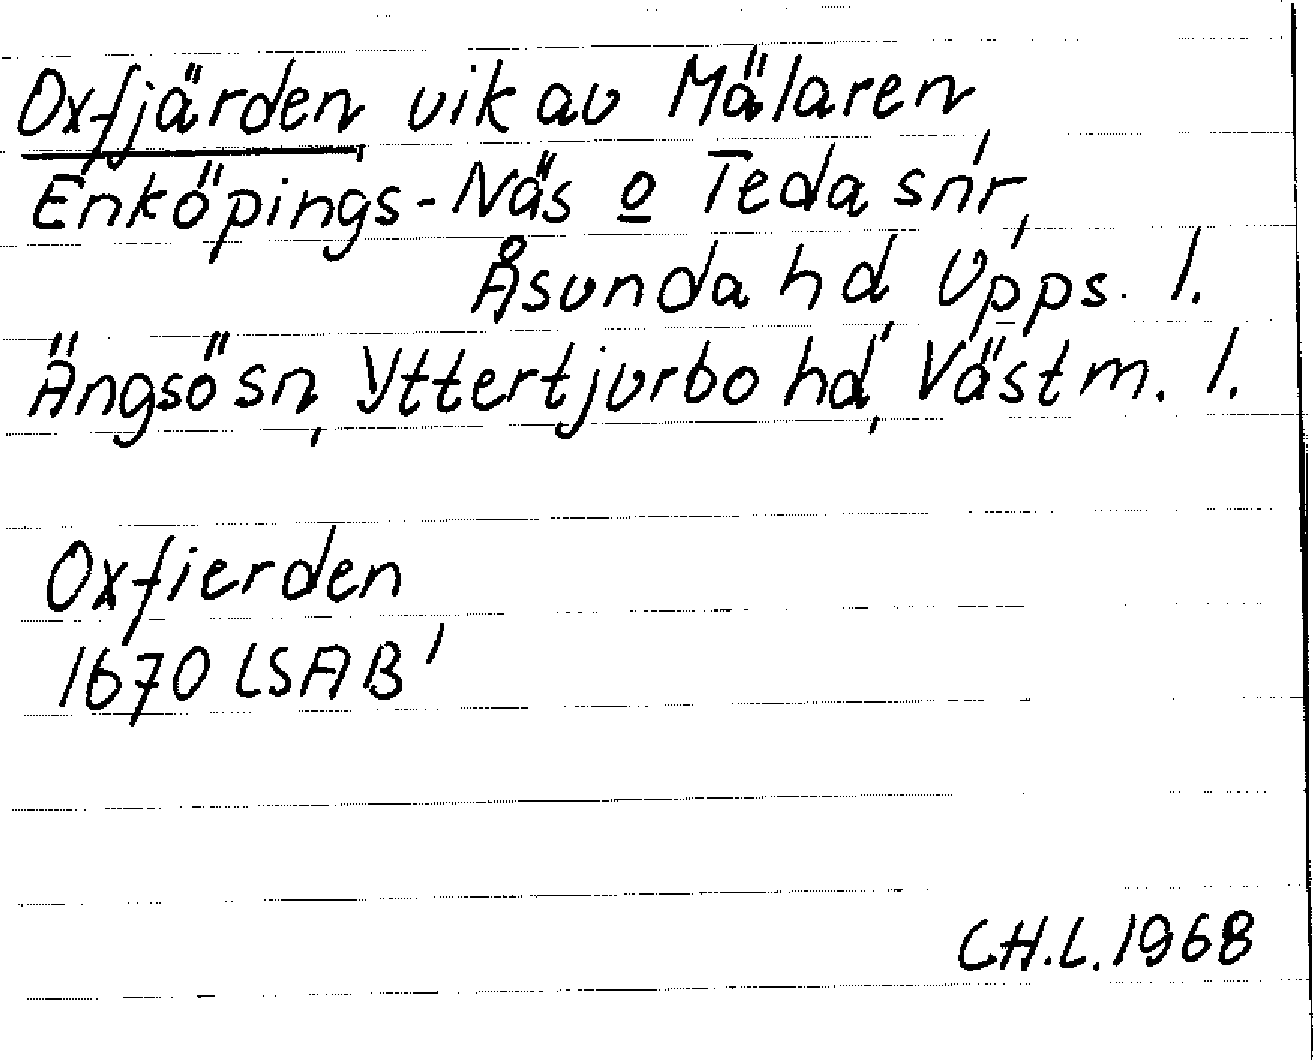 Oxfjärden, vik av Mälaren,
Enköpings-Näs o Teda snr,
Åsunda hd, Upps. l.
Ängsö sn, Yttertjurbo hd, Västm. l.
Oxfierden
1670 LSA B'
CH.L. 1968